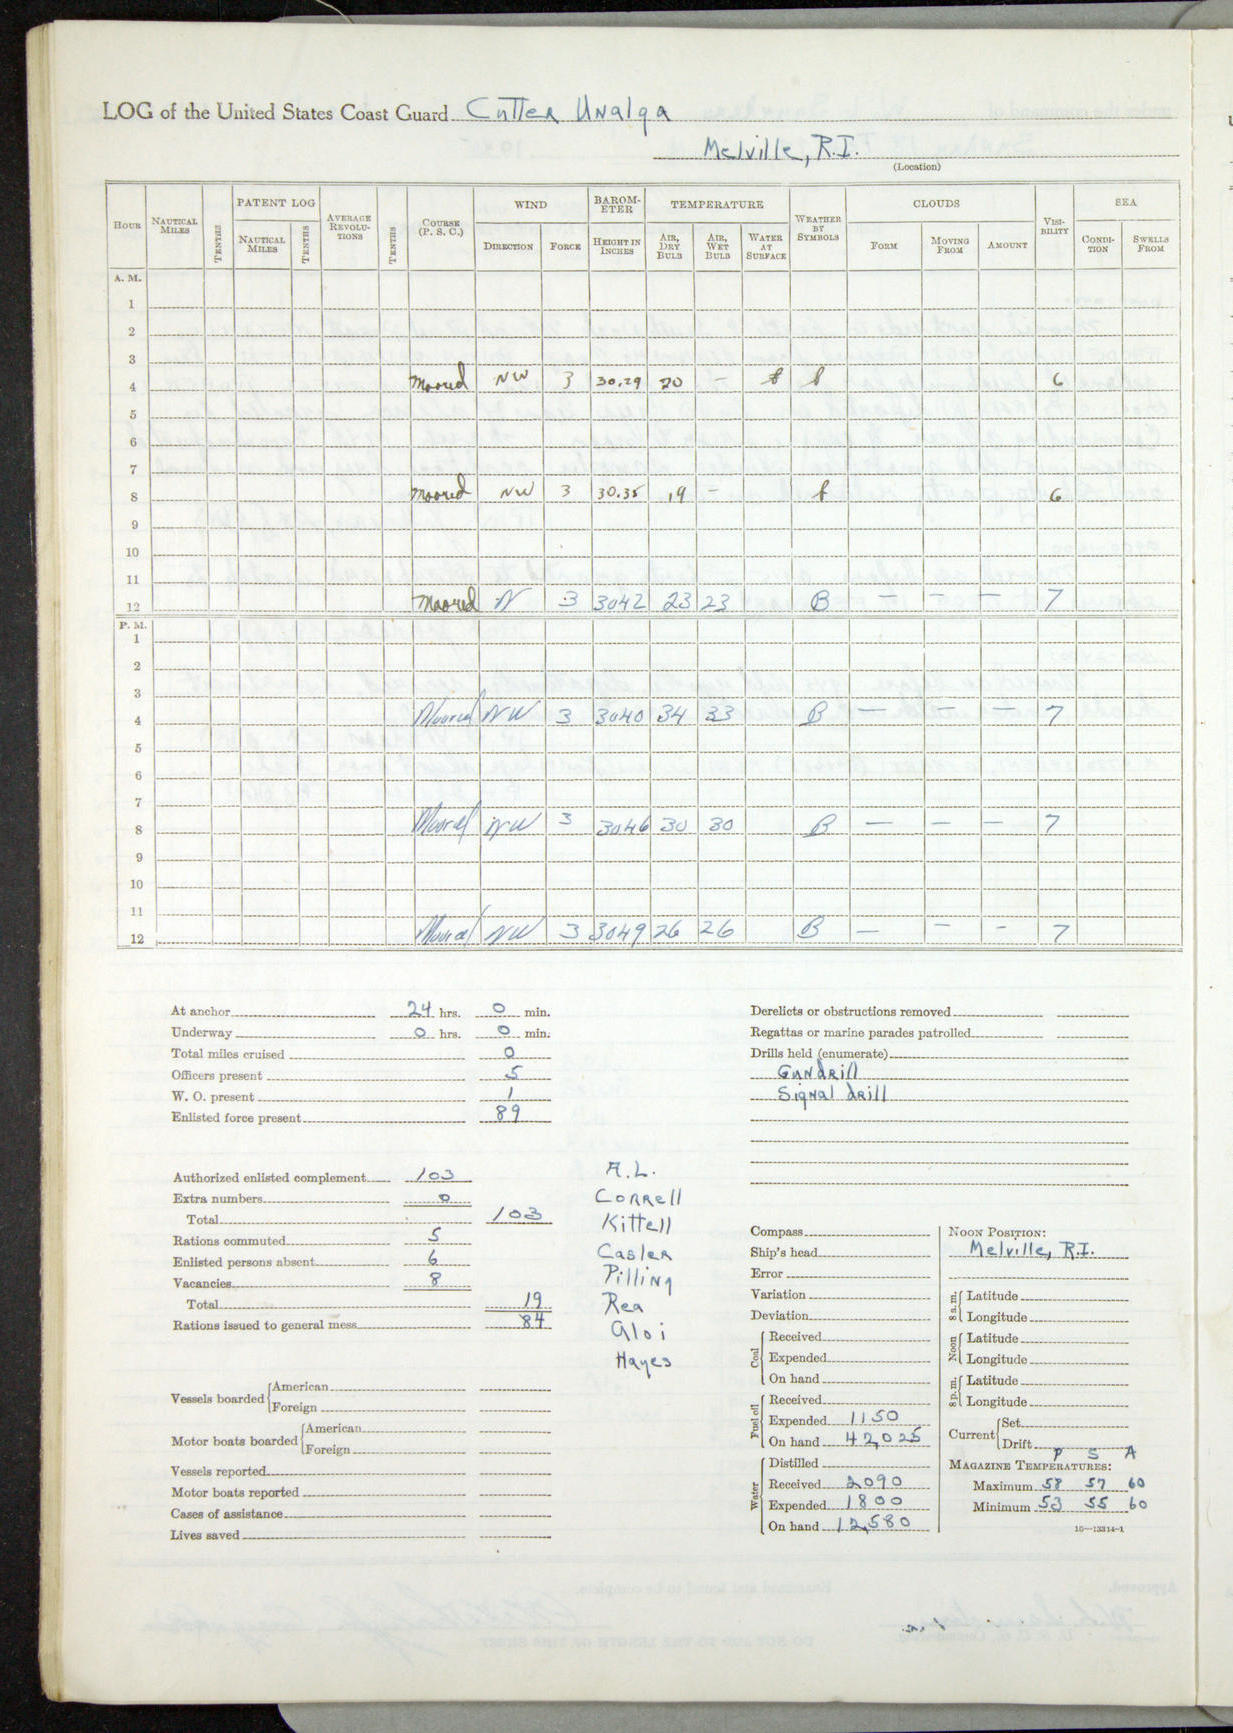 LOG of the United States Coast Guard Cutter Unalga
Melville, R.I.
(Location)
HOUR NAUTICAL MILES TENTHS PATENT LOG NAUTICAL MILES TENTHS AVERAGE REVOLUTIONS TENTHS COURSE (P. S. C.) WIND DIRECTION FORCE BAROMETER HEIGHT IN INCHES TEMPERATURE AIR, DRY BULB AIR, WET BULB WATER AT SURFACE WEATHER BY SYMBOLS CLOUDS FORM MOVING FROM AMOUNT VISIBILITY SEA CONDITION SWELLS FROM
A. M.
1
2
3
4 Moored NW 3 30.29 20 – b 6
5
6
7
8 Moored NW 3 30.35 19 – b 6
9
10
11
12 Moored N 3 3042 23 23 B — — — 7
P. M.
1
2
3
4 Moored NW 3 3040 34 33 B — — — 7
5
6
7
8 Moored NW 3 3046 30 30 B — — — 7
9
10
11
12 Moored NW 3 3049 26 26 B — — - 7
At anchor 24 hrs. 0 min.
Underway 0 hrs. 0 min.
Total miles cruised 0
Officers present 5
W. O. present 1
Enlisted force present 89
Authorized enlisted complement 103
Extra numbers 0
Total 103
Rations commuted 5
Enlisted persons absent 6
Vacancies 8
Total 19
Rations issued to general mess 84
A.L.
Correll
Kittell
Casler
Pilling
Rea
Aloi
Hayes
Vessels boarded American
Foreign
Motor boats boarded American
Foreign
Vessels reported
Motor boats reported
Cases of assistance
Lives saved
Derelicts or obstructions removed
Regattas or marine parades patrolled
Drills held (enumerate)
Gundrill
Signal drill
Compass
Ship's head
Error
Variation
Deviation
Coal Received
Expended
On hand
Fuel oil Received
Expended 1150
On hand 42,025
Water Distilled
Received 2090
Expended 1800
On hand 12,580
NOON POSITION:
Melville, R.I.
8 a. m. Latitude
Longitude
Noon Latitude
Longitude
8 p. m. Latitude
Longitude
Current Set
Drift
P S A
MAGAZINE TEMPERATURES:
Maximum 58 57 60
Minimum 53 55 60
16—13314-1